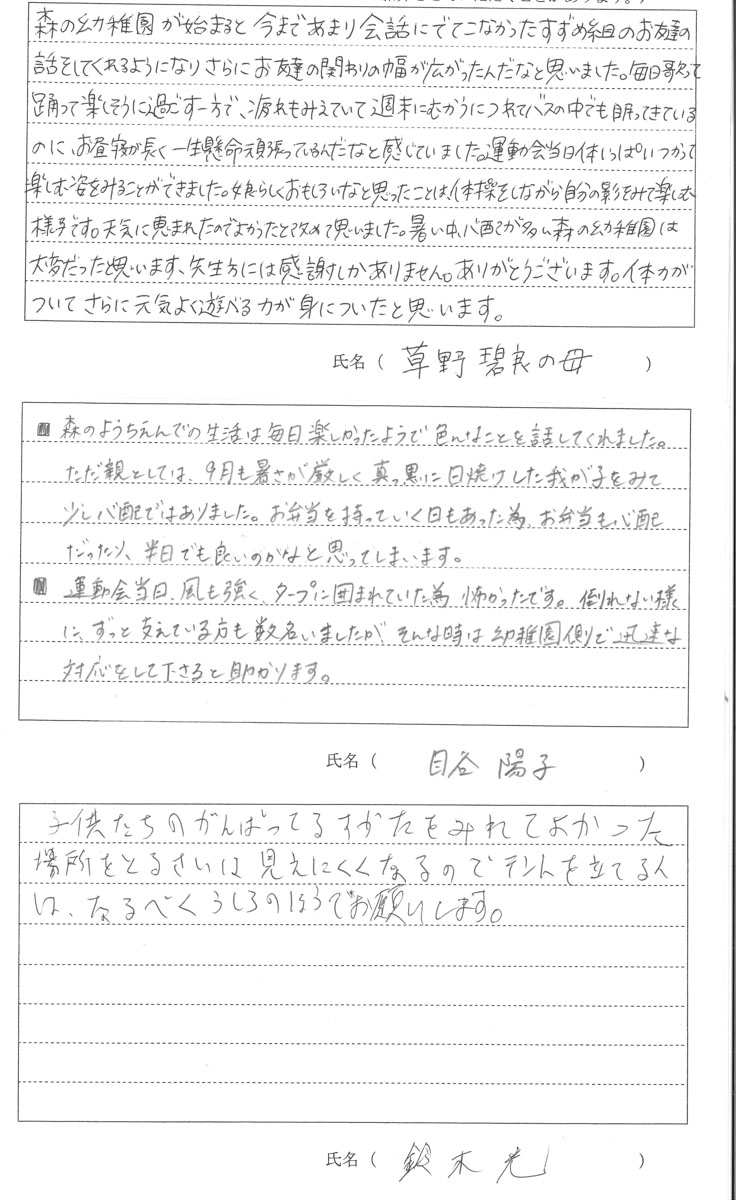 森の幼稚園が始まると今まであまり会話にでてこなかったすずめ組のお友達の
話をしてくれるようになりさらにお友達の関わりの幅が広がったんだなと思いました。毎日歌って
踊って楽しそうに過ごす一方で、疲れもみえていて週末にむかうにつれてバスの中でも眠ってきている
のに、お昼寝が長く一生懸命頑張っているんだなと感じていました。運動会当日体いっぱいつかって
楽しむ姿をみることができました。娘らしくおもしろいなと思ったことは、体操をしながら自分の影をみて楽しむ
様子です。天気に恵まれたのでよかったと改めて思いました。暑い中、心配が多い森の幼稚園は
大変だったと思います、先生方には感謝しかありません。ありがとうございます。体力が
ついてさらに元気よく遊べる力が身についたと思います。
氏名（ 草野 碧良の母 ）
森のようちえんでの生活は毎日楽しかったようで色んなことを話してくれました。
ただ親としては、9月も暑さが厳しく真っ黒に日焼けした我が子をみて
少し心配ではありました。お弁当を持っていく日もあった為、お弁当も心配
だったり、半日でも良いのかなと思ってしまいます。
運動会当日、風も強く、タープに囲まれていた為 怖かったです。倒れない様
に、ずっと支えている方も数名いましたが、そんな時は幼稚園側で迅速な
対応をして下さると助かります。
氏名（ 目谷 陽子 ）
子供たちのがんばってるすがたをみれてよかった
場所をとるさいは見えにくくなるのでテントを立てる人
は、なるべくうしろのほうでお願いします。
氏名（ 鈴木 光 ）